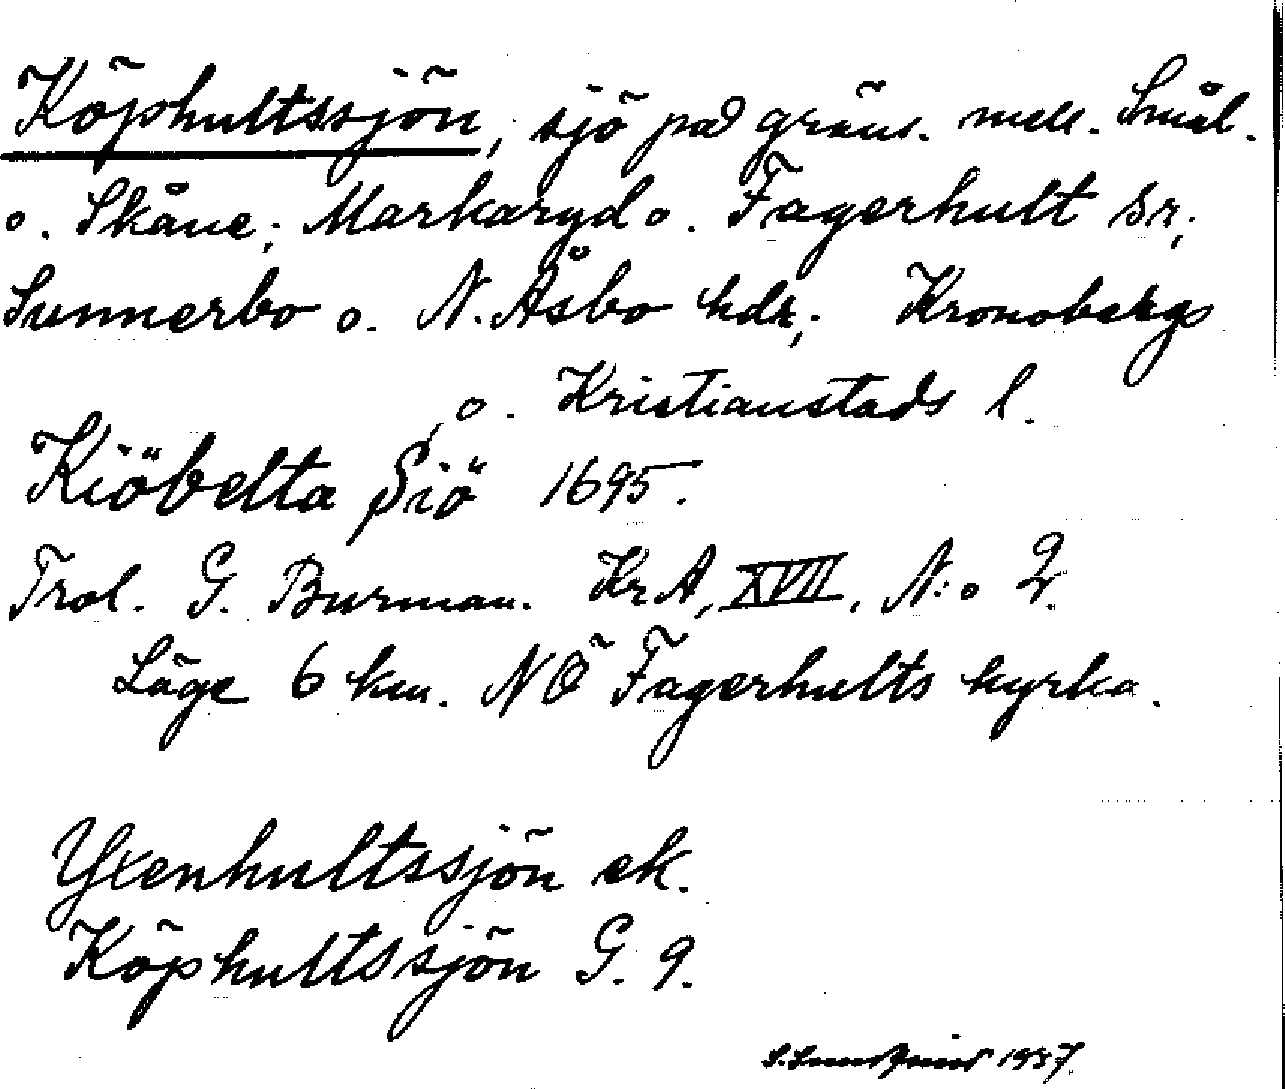 Köphultssjön, sjö på gräns. mell. Smål.
o. Skåne; Markaryd o. Fagerhult sr;
Sunnerbo o. N. Åsbo hdr; Kronobergs
o. Kristianstads l.
Kiöbelta Siö 1695.
Trol. G. Burman. KrA, XVII, N:o 2.
Läge 6 km. NÖ Fagerhults kyrka.
Yxenhultssjön ek.
Köphultssjön G. 9.
1937.